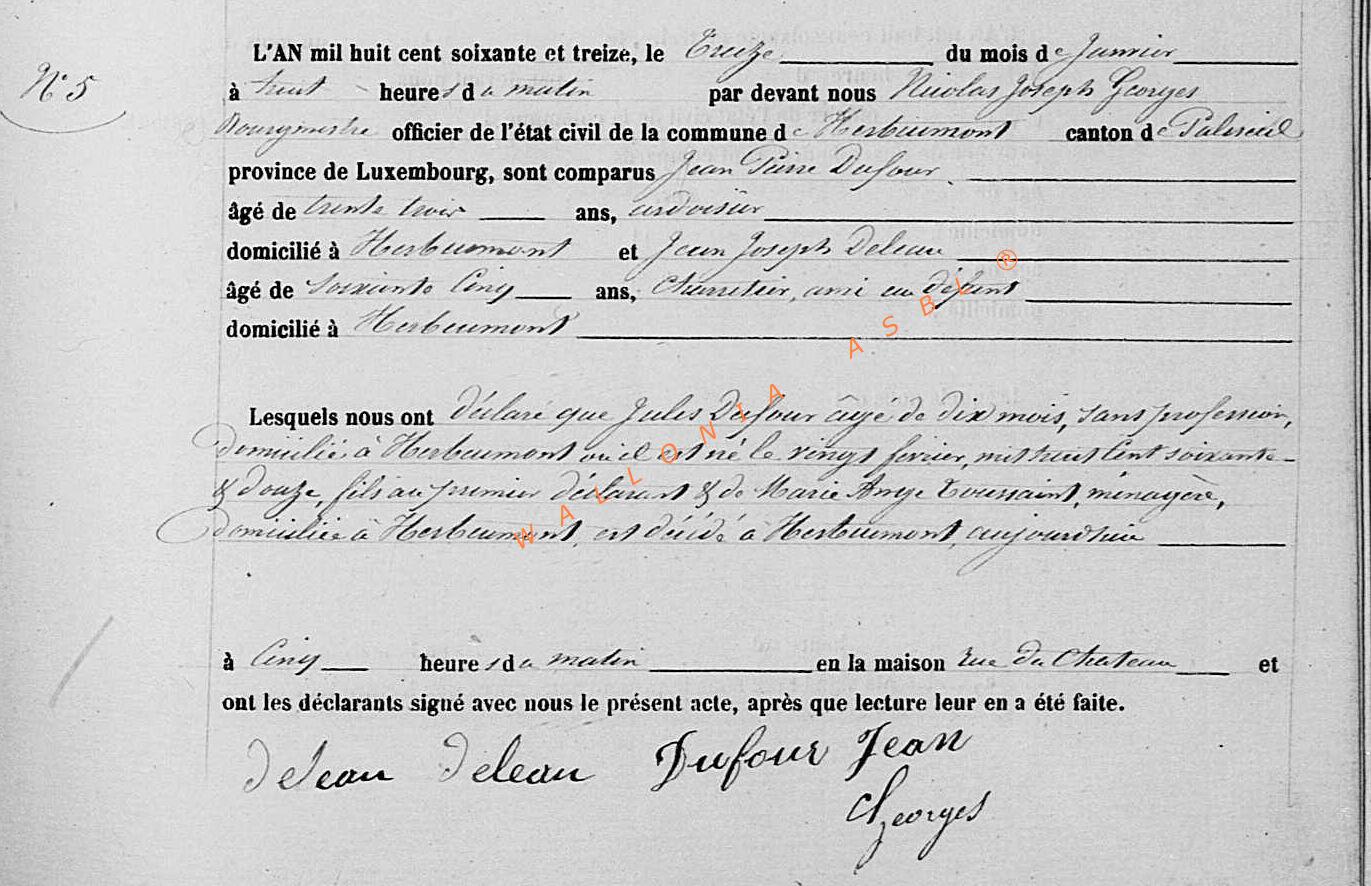 N° 5
L'AN mil huit cent soixante et treize, le Treize du mois de Janvier
à huit heures du matin par devant nous Nicolas Joseph Georges
Bourgmestre officier de l'état civil de la commune de Herbeumont canton de Paliseul
province de Luxembourg, sont comparus Jean Pierre Dufour
âgé de trente trois ans, ardoisier
domicilié à Herbeumont et Jean Joseph Deleau
âgé de soixante Cinq ans, Charretier, ami au défunt
domicilié à Herbeumont
Lesquels nous ont déclaré que Jules Dufour âgé de dix mois, sans profession,
domicilié à Herbeumont où il est né le vingt février, mil huit cent soixante-
& douze, fils au premier déclarant & de Marie Ange Toussaint, ménagère,
domiciliée à Herbeumont, est décédé à Herbeumont, aujourd'hui
à Cinq heures du matin en la maison rue du Chateau et
ont les déclarants signé avec nous le présent acte, après que lecture leur en a été faite.
deleau deleau Dufour Jean
Georges
WALLONIA ASBL ®